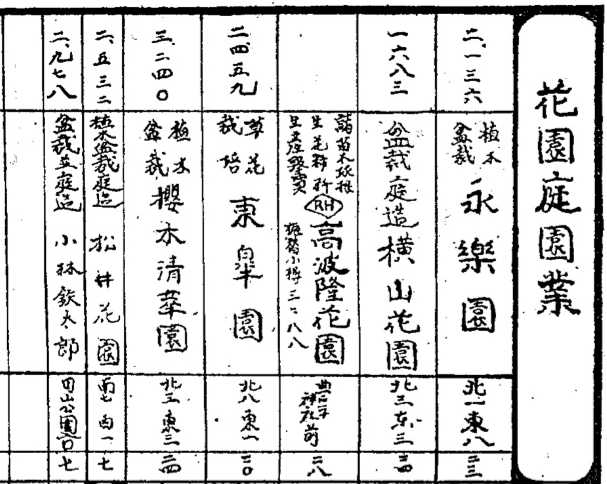 花園庭園業
二、一三六
植木
盆裁
永樂園
北一東八
二三
一六八三
盆裁庭造
横山花園
北三东三
諸苗木球根
生花材料
生産販賣
RH
高波隆花園
振替小樽三一八八
神社前
二八
二四五九
草花
栽培
東皐園
北八東一
二〇
三、二四〇
植木
盆裁
櫻木清華園
北三東三
二四
二、五三二
植木盆裁庭造
松井花園
南七西一
一七
二、九七八
盆裁並庭造
小林鉄太郎
円山公園
一〇七